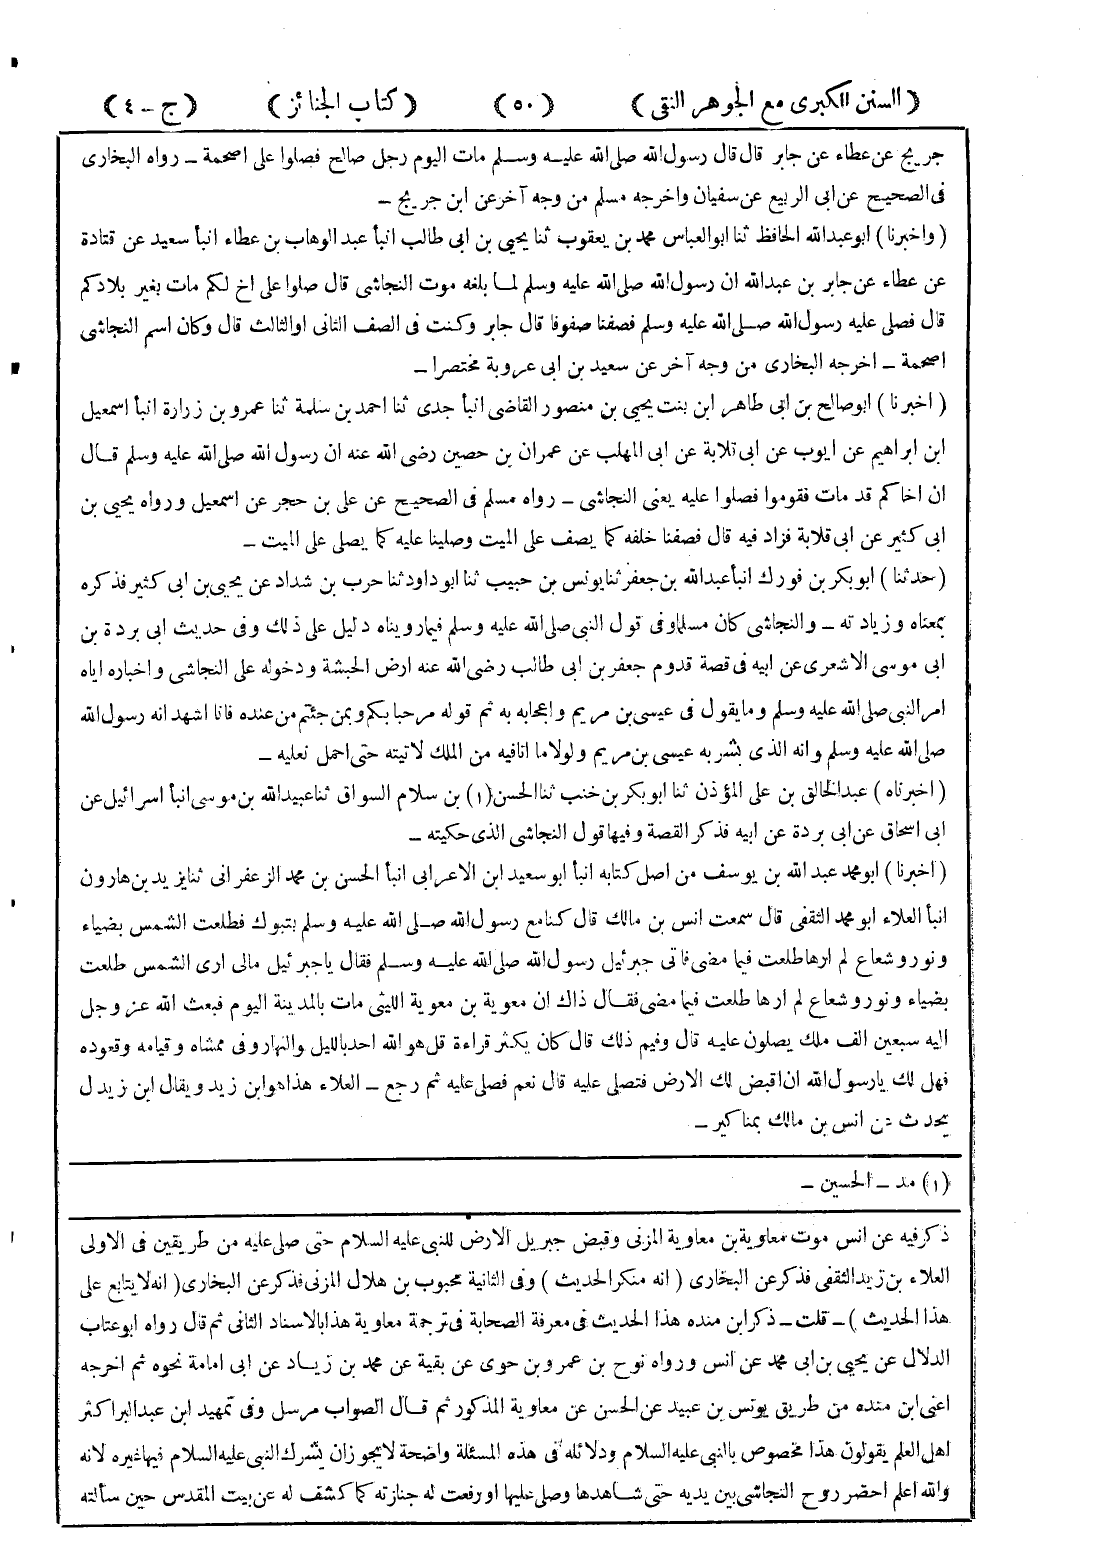 ( السنن الكبرى مع الجوهر النقى ) ( ٥٠ ) ( كتاب الجنائز ) ( ج ـ ٤ )
جريج عن عطاء عن جابر قال قال رسول الله صلى الله عليه وسلم مات اليوم رجل صالح فصلوا على اصحمة ـ رواه البخارى
فى الصحيح عن ابى الربيع عن سفيان واخرجه مسلم من وجه آخر عن ابن جريج ـ
( واخبرنا ) ابو عبد الله الحافظ ثنا ابو العباس محمد بن يعقوب ثنا يحيى بن ابى طالب انبأ عبد الوهاب بن عطاء انبأ سعيد عن قتادة
عن عطاء عن جابر بن عبد الله ان رسول الله صلى الله عليه وسلم لما بلغه موت النجاشى قال صلوا على اخ لكم مات بغير بلادكم
قال فصلى عليه رسول الله صلى الله عليه وسلم فصفنا صفوفا قال جابر وكنت فى الصف الثانى او الثالث قال وكان اسم النجاشى
اصحمة ـ اخرجه البخارى من وجه آخر عن سعيد بن ابى عروبة مختصرا ـ
( اخبرنا ) ابو صالح بن ابى طاهر ابن بنت يحيى بن منصور القاضى انبأ جدى ثنا احمد بن سلمة ثنا عمرو بن زرارة انبأ اسمعيل
ابن ابراهيم عن ايوب عن ابى قلابة عن ابى المهلب عن عمران بن حصين رضى الله عنه ان رسول الله صلى الله عليه وسلم قال
ان اخاكم قد مات فقوموا فصلوا عليه يعنى النجاشى ـ رواه مسلم فى الصحيح عن على بن حجر عن اسمعيل ورواه يحيى بن
ابى كثير عن ابى قلابة فزاد فيه قال فصفنا خلفه كما يصف على الميت وصلينا عليه كما يصلى على الميت ـ
( حدثنا ) ابو بكر بن فورك انبأ عبد الله بن جعفر ثنا يونس بن حبيب ثنا ابو داود ثنا حرب بن شداد عن يحيى بن ابى كثير فذكره
بمعناه وزيادته ـ والنجاشى كان مسلما وفى قول النبى صلى الله عليه وسلم فيما رويناه دليل على ذلك وفى حديث ابى بردة بن
ابى موسى الاشعرى عن ابيه فى قصة قدوم جعفر بن ابى طالب رضى الله عنه ارض الحبشة ودخوله على النجاشى واخباره اياه
امر النبى صلى الله عليه وسلم وما يقول فى عيسى بن مريم واعجابه به ثم قوله مرحبا بكم وبمن جئتم من عنده فانا اشهد انه رسول الله
صلى الله عليه وسلم وانه الذى بشر به عيسى بن مريم ولولا ما انا فيه من الملك لاتيته حتى احمل نعليه ـ
( اخبرناه ) عبد الخالق بن على المؤذن ثنا ابو بكر بن خنب ثنا الحسن (١) بن سلام السواق ثنا عبيد الله بن موسى انبأ اسرائيل عن
ابى اسحاق عن ابى بردة عن ابيه فذكر القصة وفيها قول النجاشى الذى حكيته ـ
( اخبرنا ) ابو محمد عبد الله بن يوسف من اصل كتابه انبأ ابو سعيد ابن الاعرابى انبأ الحسن بن محمد الزعفرانى ثنا يزيد بن هارون
انبأ العلاء ابو محمد الثقفى قال سمعت انس بن مالك قال كنا مع رسول الله صلى الله عليه وسلم بتبوك فطلعت الشمس بضياء
ونور وشعاع لم ارها طلعت فيما مضى فاتى جبرئيل رسول الله صلى الله عليه وسلم فقال يا جبرئيل مالى ارى الشمس طلعت
بضياء ونور وشعاع لم ارها طلعت فيما مضى فقال ذاك ان معوية بن معوية الليثى مات بالمدينة اليوم فبعث الله عز وجل
اليه سبعين الف ملك يصلون عليه قال وفيم ذلك قال كان يكثر قراءة قل هو الله احد بالليل والنهار وفى ممشاه وقيامه وقعوده
فهل لك يا رسول الله ان اقبض لك الارض فتصلى عليه قال نعم فصلى عليه ثم رجع ـ العلاء هذا هو ابن زيد ويقال ابن زيدل
يحدث عن انس بن مالك بمناكير ـ
(١) مد ـ الحسين ـ
ذكر فيه عن انس موت معاوية بن معاوية المزنى وقبض جبريل الارض للنبى عليه السلام حتى صلى عليه من طريقين فى الاولى
العلاء بن زيد الثقفى فذكر عن البخارى ( انه منكر الحديث ) وفى الثانية محبوب بن هلال المزنى فذكر عن البخارى ( انه لا يتابع على
هذا الحديث ) ـ قلت ـ ذكر ابن منده هذا الحديث فى معرفة الصحابة فى ترجمة معاوية هذا بالاسناد الثانى ثم قال رواه ابو عتاب
الدلال عن يحيى بن ابى محمد عن انس ورواه نوح بن عمرو بن حوى عن بقية عن محمد بن زياد عن ابى امامة نحوه ثم اخرجه
اعنى ابن منده من طريق يونس بن عبيد عن الحسن عن معاوية المذكور ثم قال الصواب مرسل وفى تمهيد ابن عبد البر اكثر
اهل العلم يقولون هذا مخصوص بالنبى عليه السلام ودلائله فى هذه المسئلة واضحة لا يجوز ان يشرك النبى عليه السلام فيها غيره لانه
والله اعلم احضر روح النجاشى بين يديه حتى شاهدها وصلى عليها او رفعت له جنازته كما كشف له عن بيت المقدس حين سألته